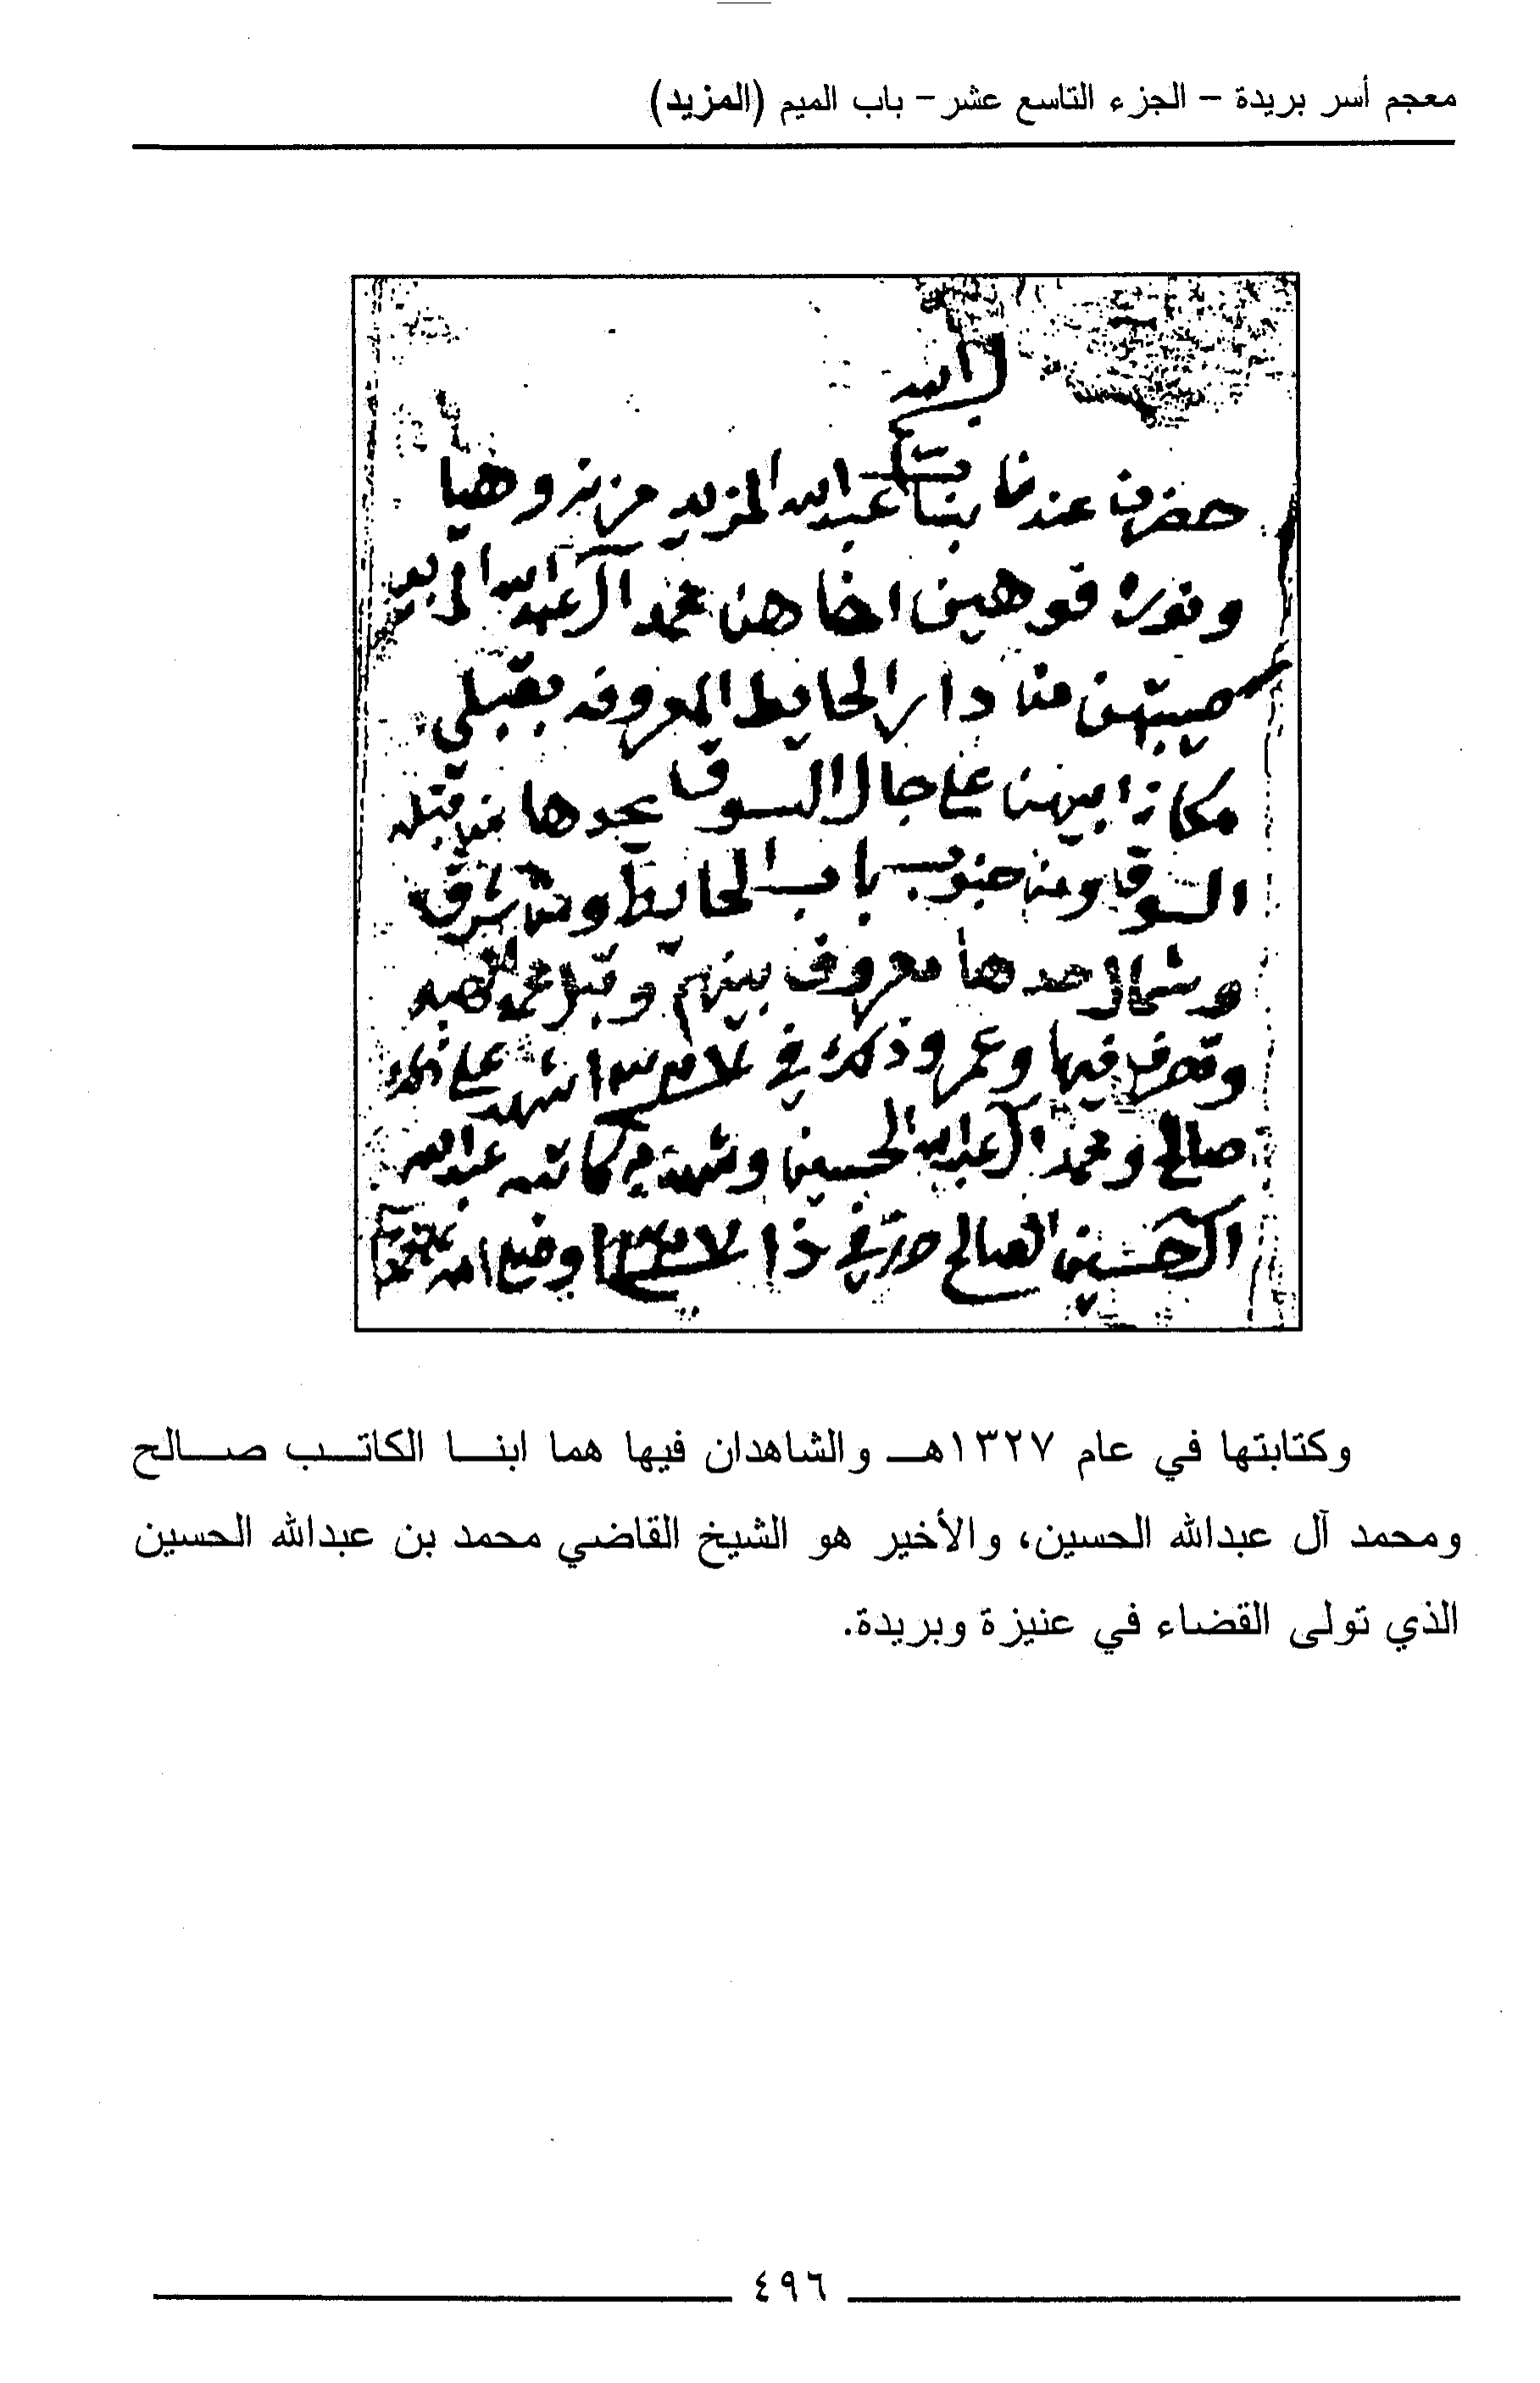 معجم أسر بريدة – الجزء التاسع عشر – باب الميم (المزيد)
حضرن عندنا بنات عبدالله المزيد مزنه وهيا
ونوره فوهبن اخاهن محمد آل عبدالله المزيد
مصيبتهن من دار الحايط المعروفه بقبلي
على جال السوق يحدها من قبله
السوق ومن جنوب باب الحايط ومن شرق
وشمال حدها معروف بينهم وقبل محمد الهبه
وتصرف فيها وعمر وذلك في ١٣٢٧ شهد على ذلك
صالح ومحمد آل عبدالله الحسين وشهد به كاتبه عبدالله
آل حسين الصالح حرر في ذا ١٣٢٧ وصلى الله على محمد
وكتابتها في عام ١٣٢٧هـ والشاهدان فيها هما ابنا الكاتب صالح
ومحمد آل عبدالله الحسين، والأخير هو الشيخ القاضي محمد بن عبدالله الحسين
الذي تولى القضاء في عنيزة وبريدة.
٤٩٦